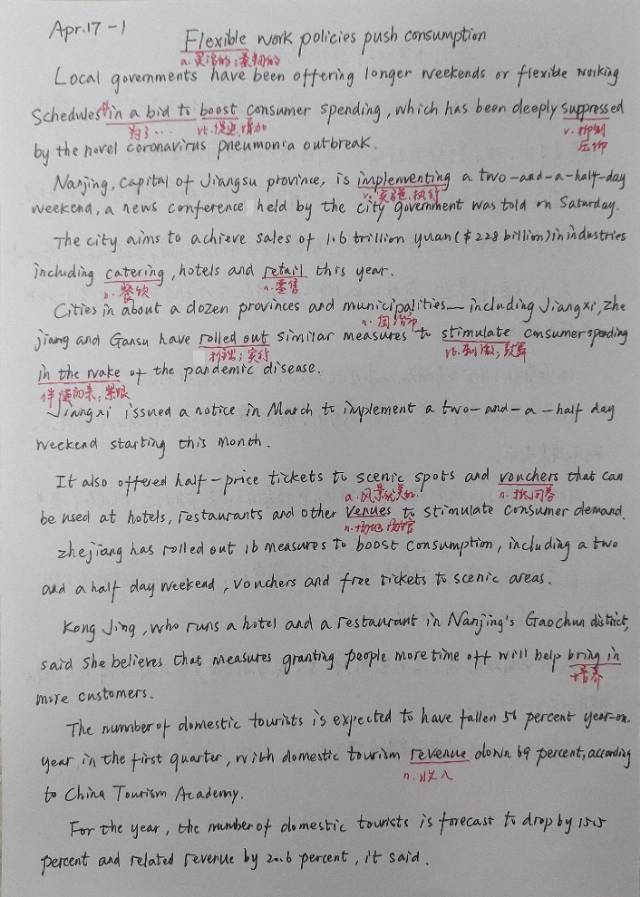 Apr.17-1
Flexible work policies push consumption
a.灵活的;柔韧的
Local governments have been offering longer weekends or flexible working
Schedules in a bid to boost consumer spending, which has been deeply suppressed
为了... vt.促进,增加 v.抑制
压抑
by the novel coronavirus pneumonia outbreak.
Nanjing, capital of Jiangsu province, is implementing a two-and-a-half-day
v.实施,执行
weekend, a news conference held by the city government was told on Saturday.
The city aims to achieve sales of 1.6 trillion yuan ($228 billion) in industries
including catering, hotels and retail this year.
n.餐饮 n.零售
Cities in about a dozen provinces and municipalities—including Jiangxi, Zhe
n.
jiang and Gansu have rolled out similar measures to stimulate consumer spending
推出;实行 vt.刺激;鼓舞
in the wake of the pandemic disease.
伴随而来;紧跟
Jiangxi issued a notice in March to implement a two-and-a-half day
weekend starting this month.
It also offered half-price tickets to scenic spots and vouchers that can
a.风景优美的 n.
be used at hotels, restaurants and other venues to stimulate consumer demand.
n.场地 场馆
Zhejiang has rolled out 16 measures to boost consumption, including a two
and a half day weekend, vouchers and free tickets to scenic areas.
Kong Jing, who runs a hotel and a restaurant in Nanjing's Gaochun district,
said she believes that measures granting people more time off will help bring in
培养
more customers.
The number of domestic tourists is expected to have fallen 56 percent year-on-
year in the first quarter, with domestic tourism revenue down 69 percent, according
n.收入
to China Tourism Academy.
For the year, the number of domestic tourists is forecast to drop by 15.5
percent and related revenue by 20.6 percent, it said.